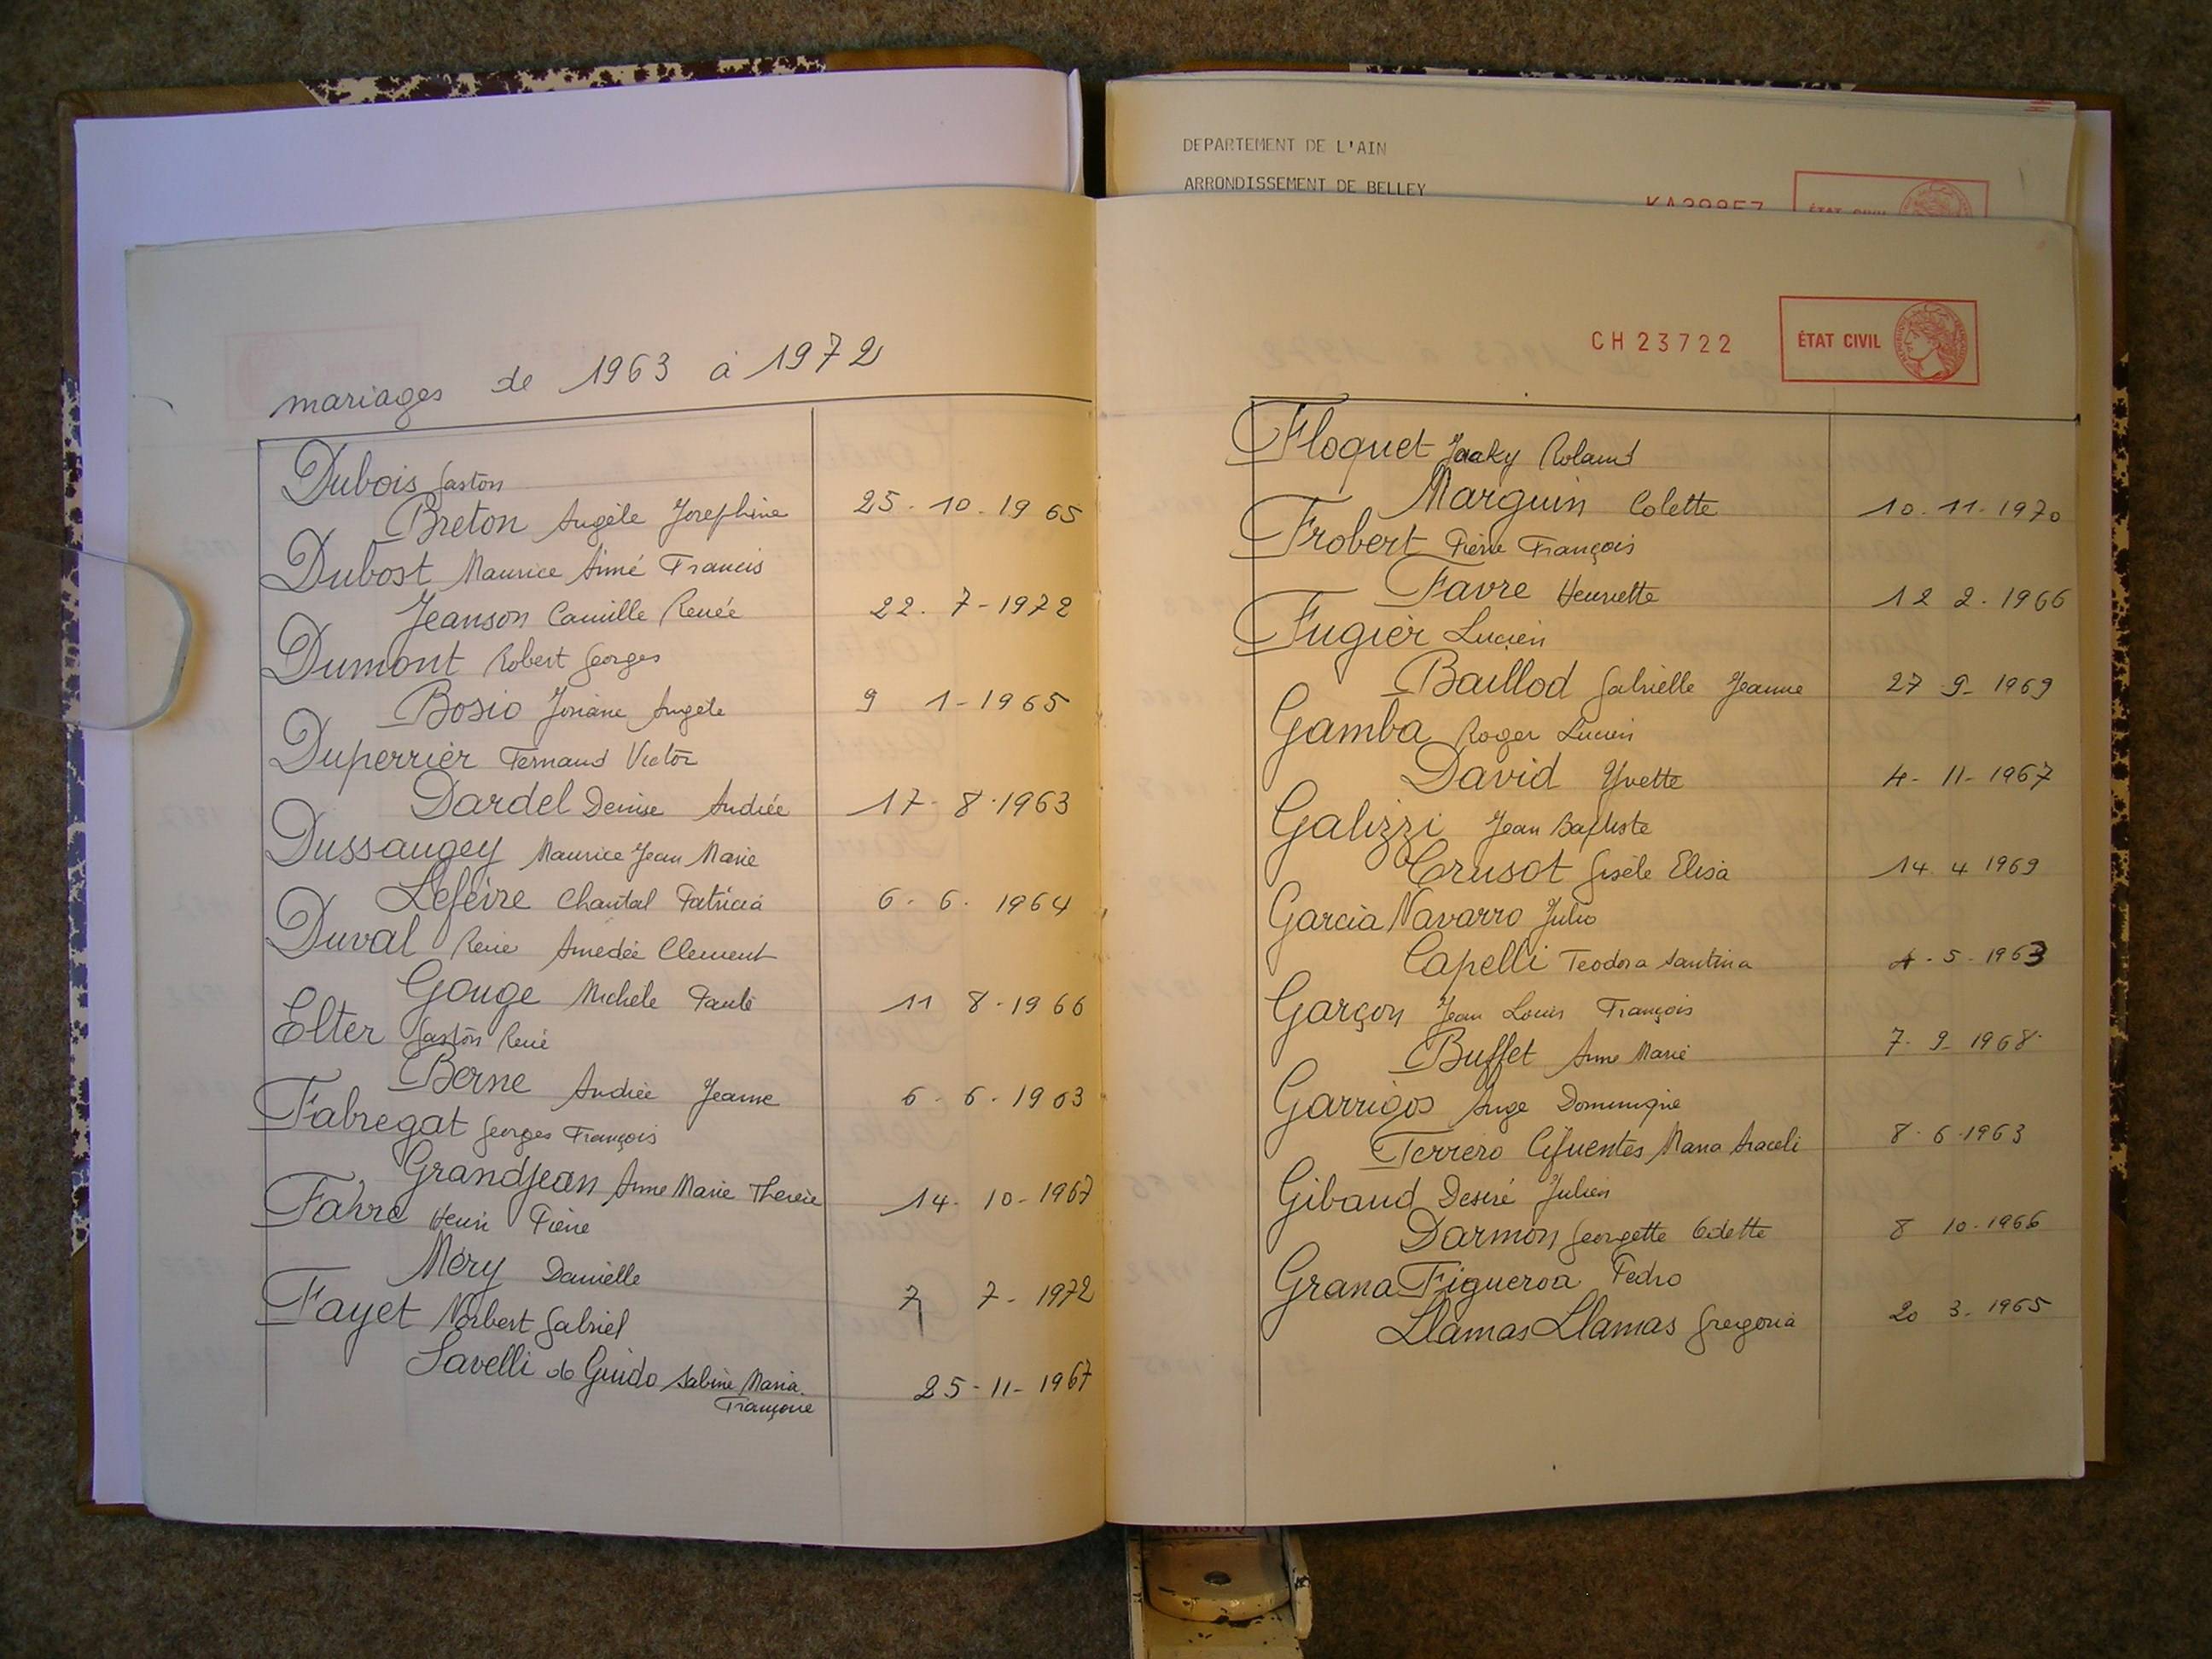 mariages de 1963 à 1972
Dubois Gaston
Breton Angèle Josephine 25-10-1965
Dubost Maurice Aimé Francis
Jeanson Camille Renée 22-7-1972
Dumont Robert Georges
Bosio Josiane Angele 9 1-1965
Duperrier Fernand Victor
Dardel Denise Andrée 17-8-1963
Dussaugey Maurice Jean Marie
Lefèvre Chantal Patricia 6-6-1964
Duval René Amedée Clement
Gouge Michele Paule 11 8-1966
Elter Gaston René
Berne Andrée Jeanne 6-6-1963
Fabregat Georges François
Grandjean Anne Marie Therese 14-10-1967
Favre Henri Pierre
Méry Danielle 7 7-1972
Fayet Norbert Gabriel
Savelli do Guido Sabine Maria 25-11-1967
Françoise
DEPARTEMENT DE L'AIN
ARRONDISSEMENT DE BELLEY
CH23722 ÉTAT CIVIL
Floquet Jacky Roland
Marguin Colette 10-11-1970
Frobert Pierre François
Favre Henriette 12 2-1966
Fugier Lucien
Baillod Gabrielle Jeanne 27-9-1969
Gamba Roger Lucien
David Yvette 4-11-1967
Galizzi Jean Baptiste
Crusot Gisèle Elisa 14 4 1969
Garcia Navarro Julio
Capelli Teodora Santina 4-5-1963
Garçon Jean Louis François
Buffet Anne Marie 7-9-1968
Garrigos Ange Dominique
Terrero Cifuentes Maria Araceli 8-6-1963
Gibaud Desiré Julien
Darmon Georgette Odette 8 10-1966
Grana Figueroa Pedro
Llamas Llamas Gregoria 20 3-1965